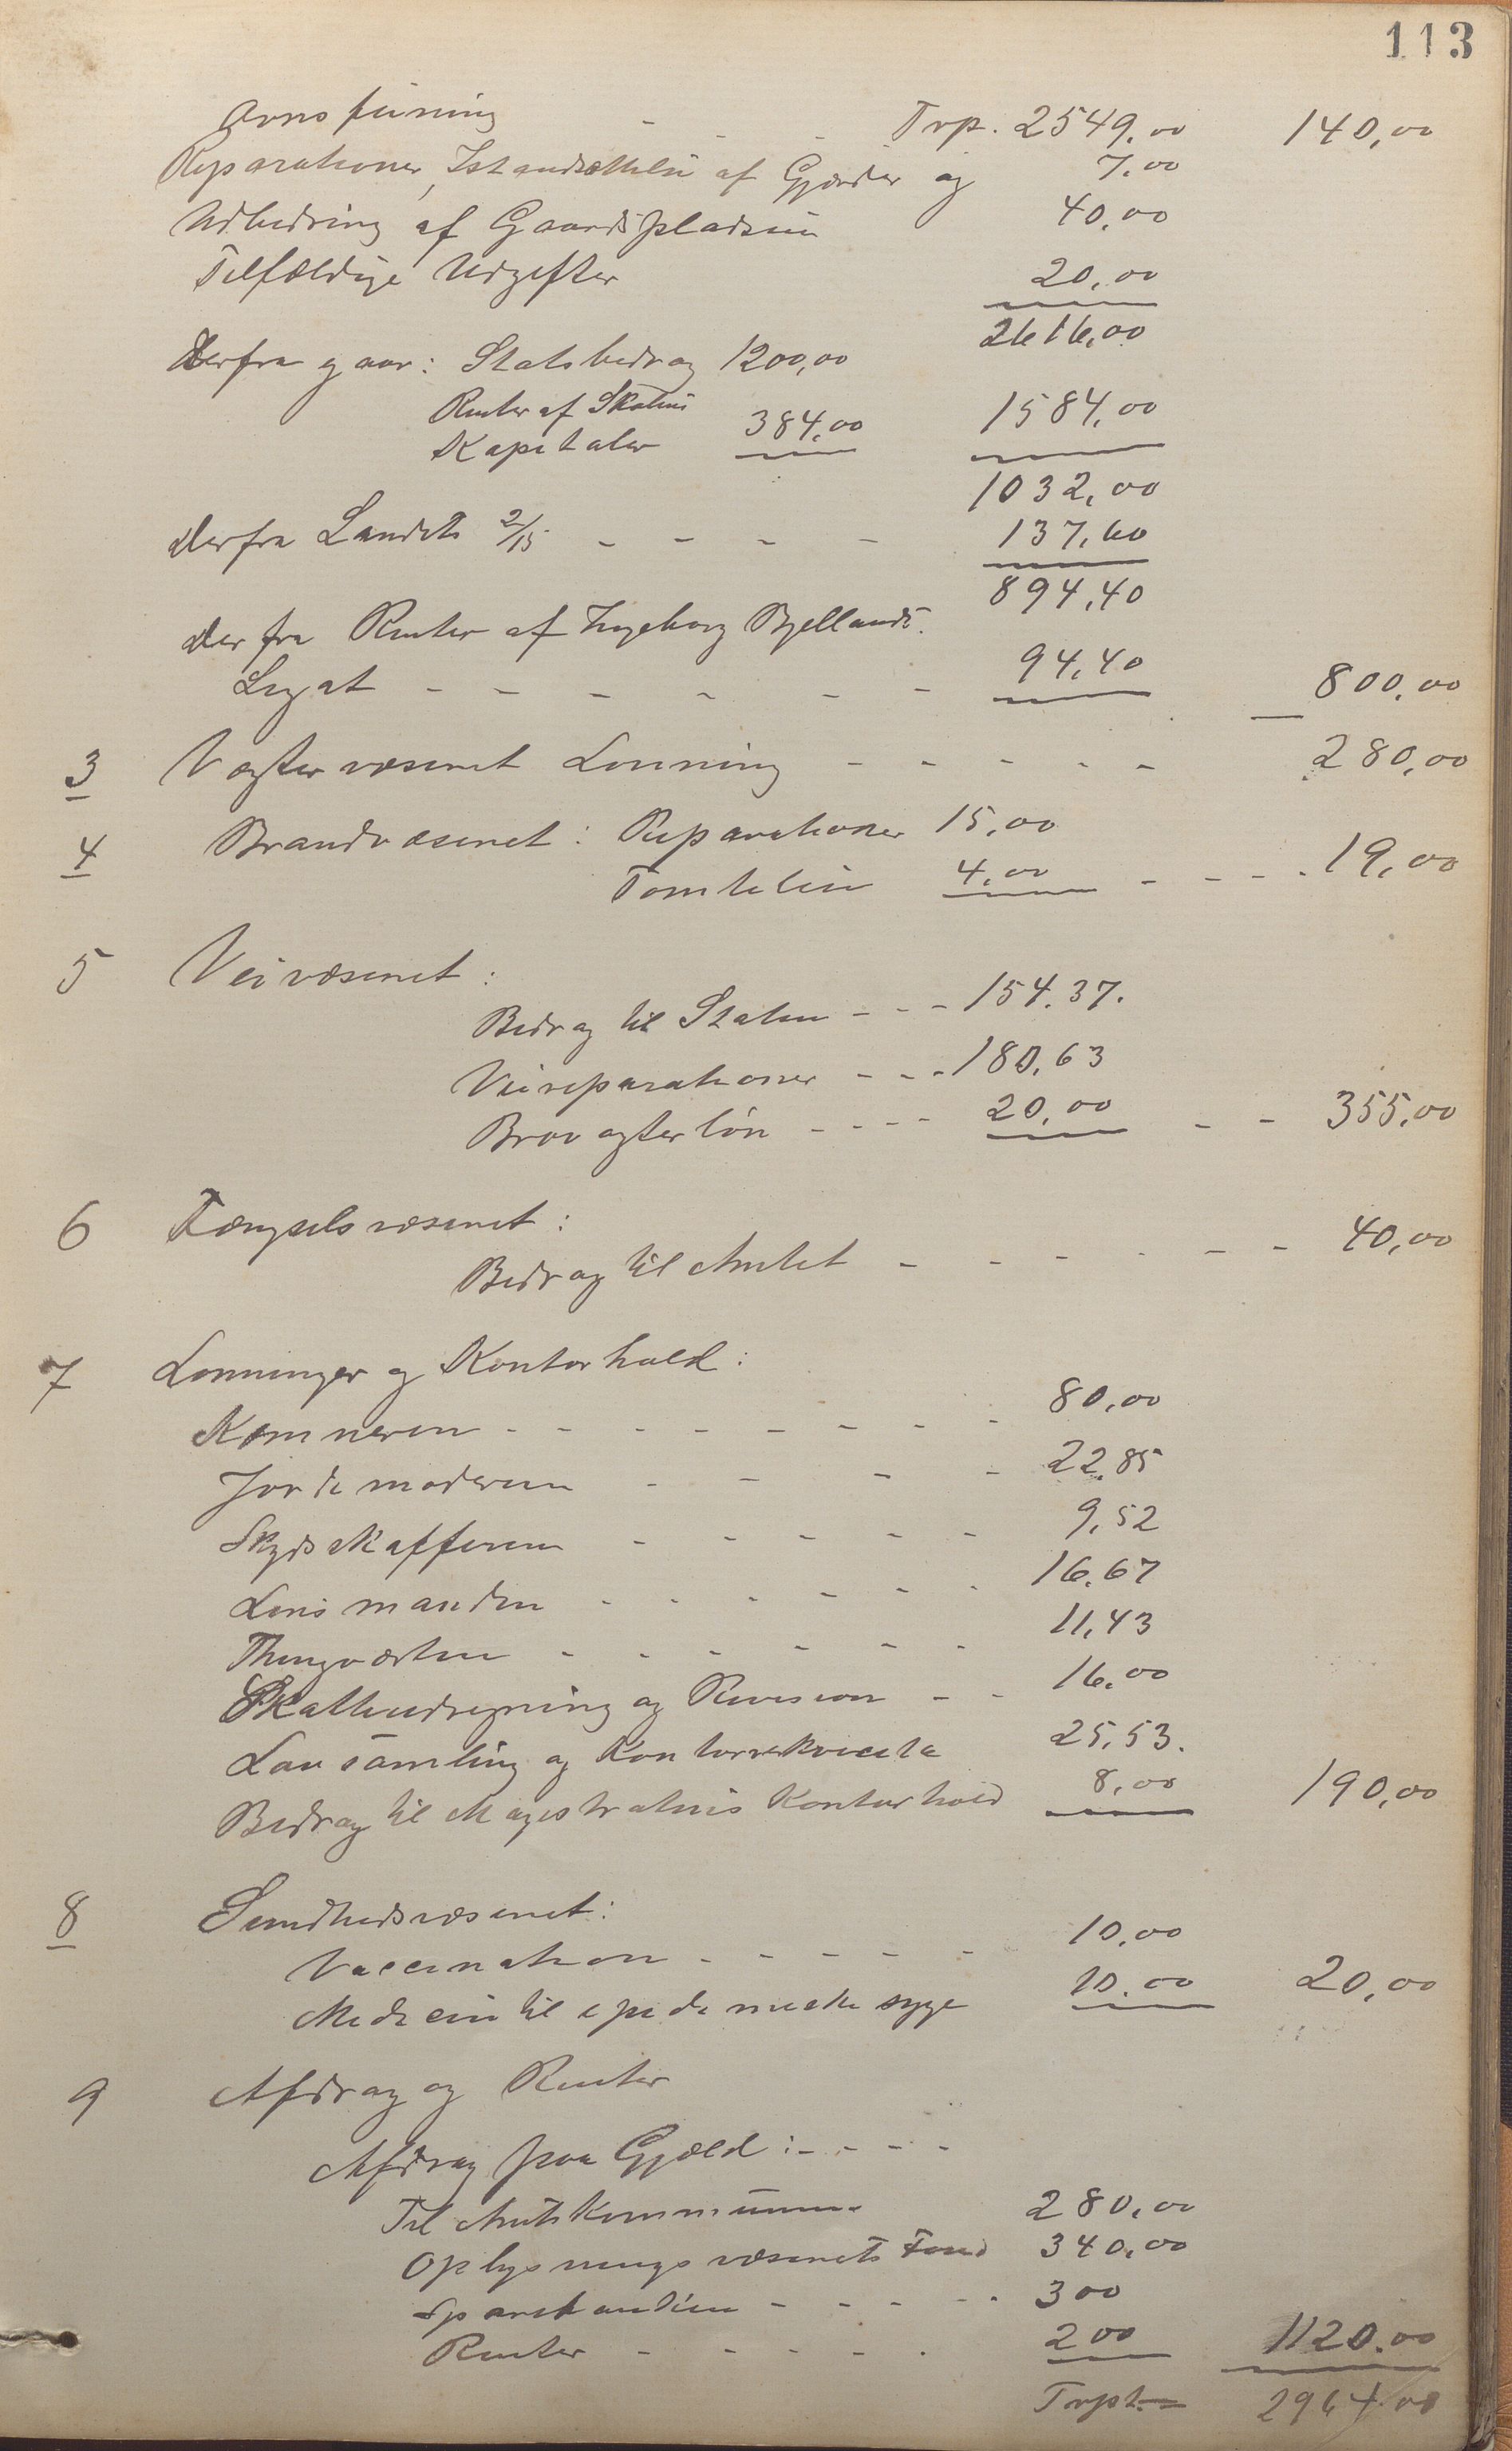 113
Trp. 2549,00 140,00
Ovnsfeining - - - 7,00
Reparationer, Istandsættelse af Gjærder og
Udbedring af Gaardspladsen 40,00
Tilfældige Udgifter 20,00
2616,00
Derfra gaar: Statsbidrag 1200,00
Renter af Skolens
Kapitaler 384,00 1584,00
1032,00
derfra Landets 2/15 - - - - 137,60
894,40
derfra Renter af Ingeborg Bjellands
Legat - - - - - - 94,40 800,00
3 Vægtervæsenet Lønning - - - - - 280,00
4 Brandvæsenet: Reparationer 15,00
Tomteleie 4,00 - - - - 19,00
5 Veivæsenet:
Bidrag til Staten - - - 154.37.
Veireparationer - - - 180,63
Brovagterløn - - - - 20,00 - - 355,00
6 Fængselsvæsenet:
Bidrag til Amtet - - - - - - 40,00
7 Lønninger og Kontorhold:
Kæmneren - - - - - - - - 80,00
Jordemoderen - - - - 22,85
Skydsskafferen - - - - - 9,52
Lensmanden - - - - - - 16.67
Thingværten - - - - - - 11,43
Skatteudregning og Revision - - 16.00
Lovsamling og Kontorrekvisita 25,53.
Bidrag til Magistratens Kontorhold 8,00 190,00
8 Sundhedsvæsenet:
Vaccination - - - - - 10,00
Medicin til epidemiske syge 10.00 20,00
9 Afdrag og Renter
Afdrag paa Gjæld: - - - -
Til Amtskommunen 280,00
Oplysningsvæsenets Fond 340,00
Sparebanken - - - - - 300
Renter - - - - - 200 1120.00
Trpt. 2964.00